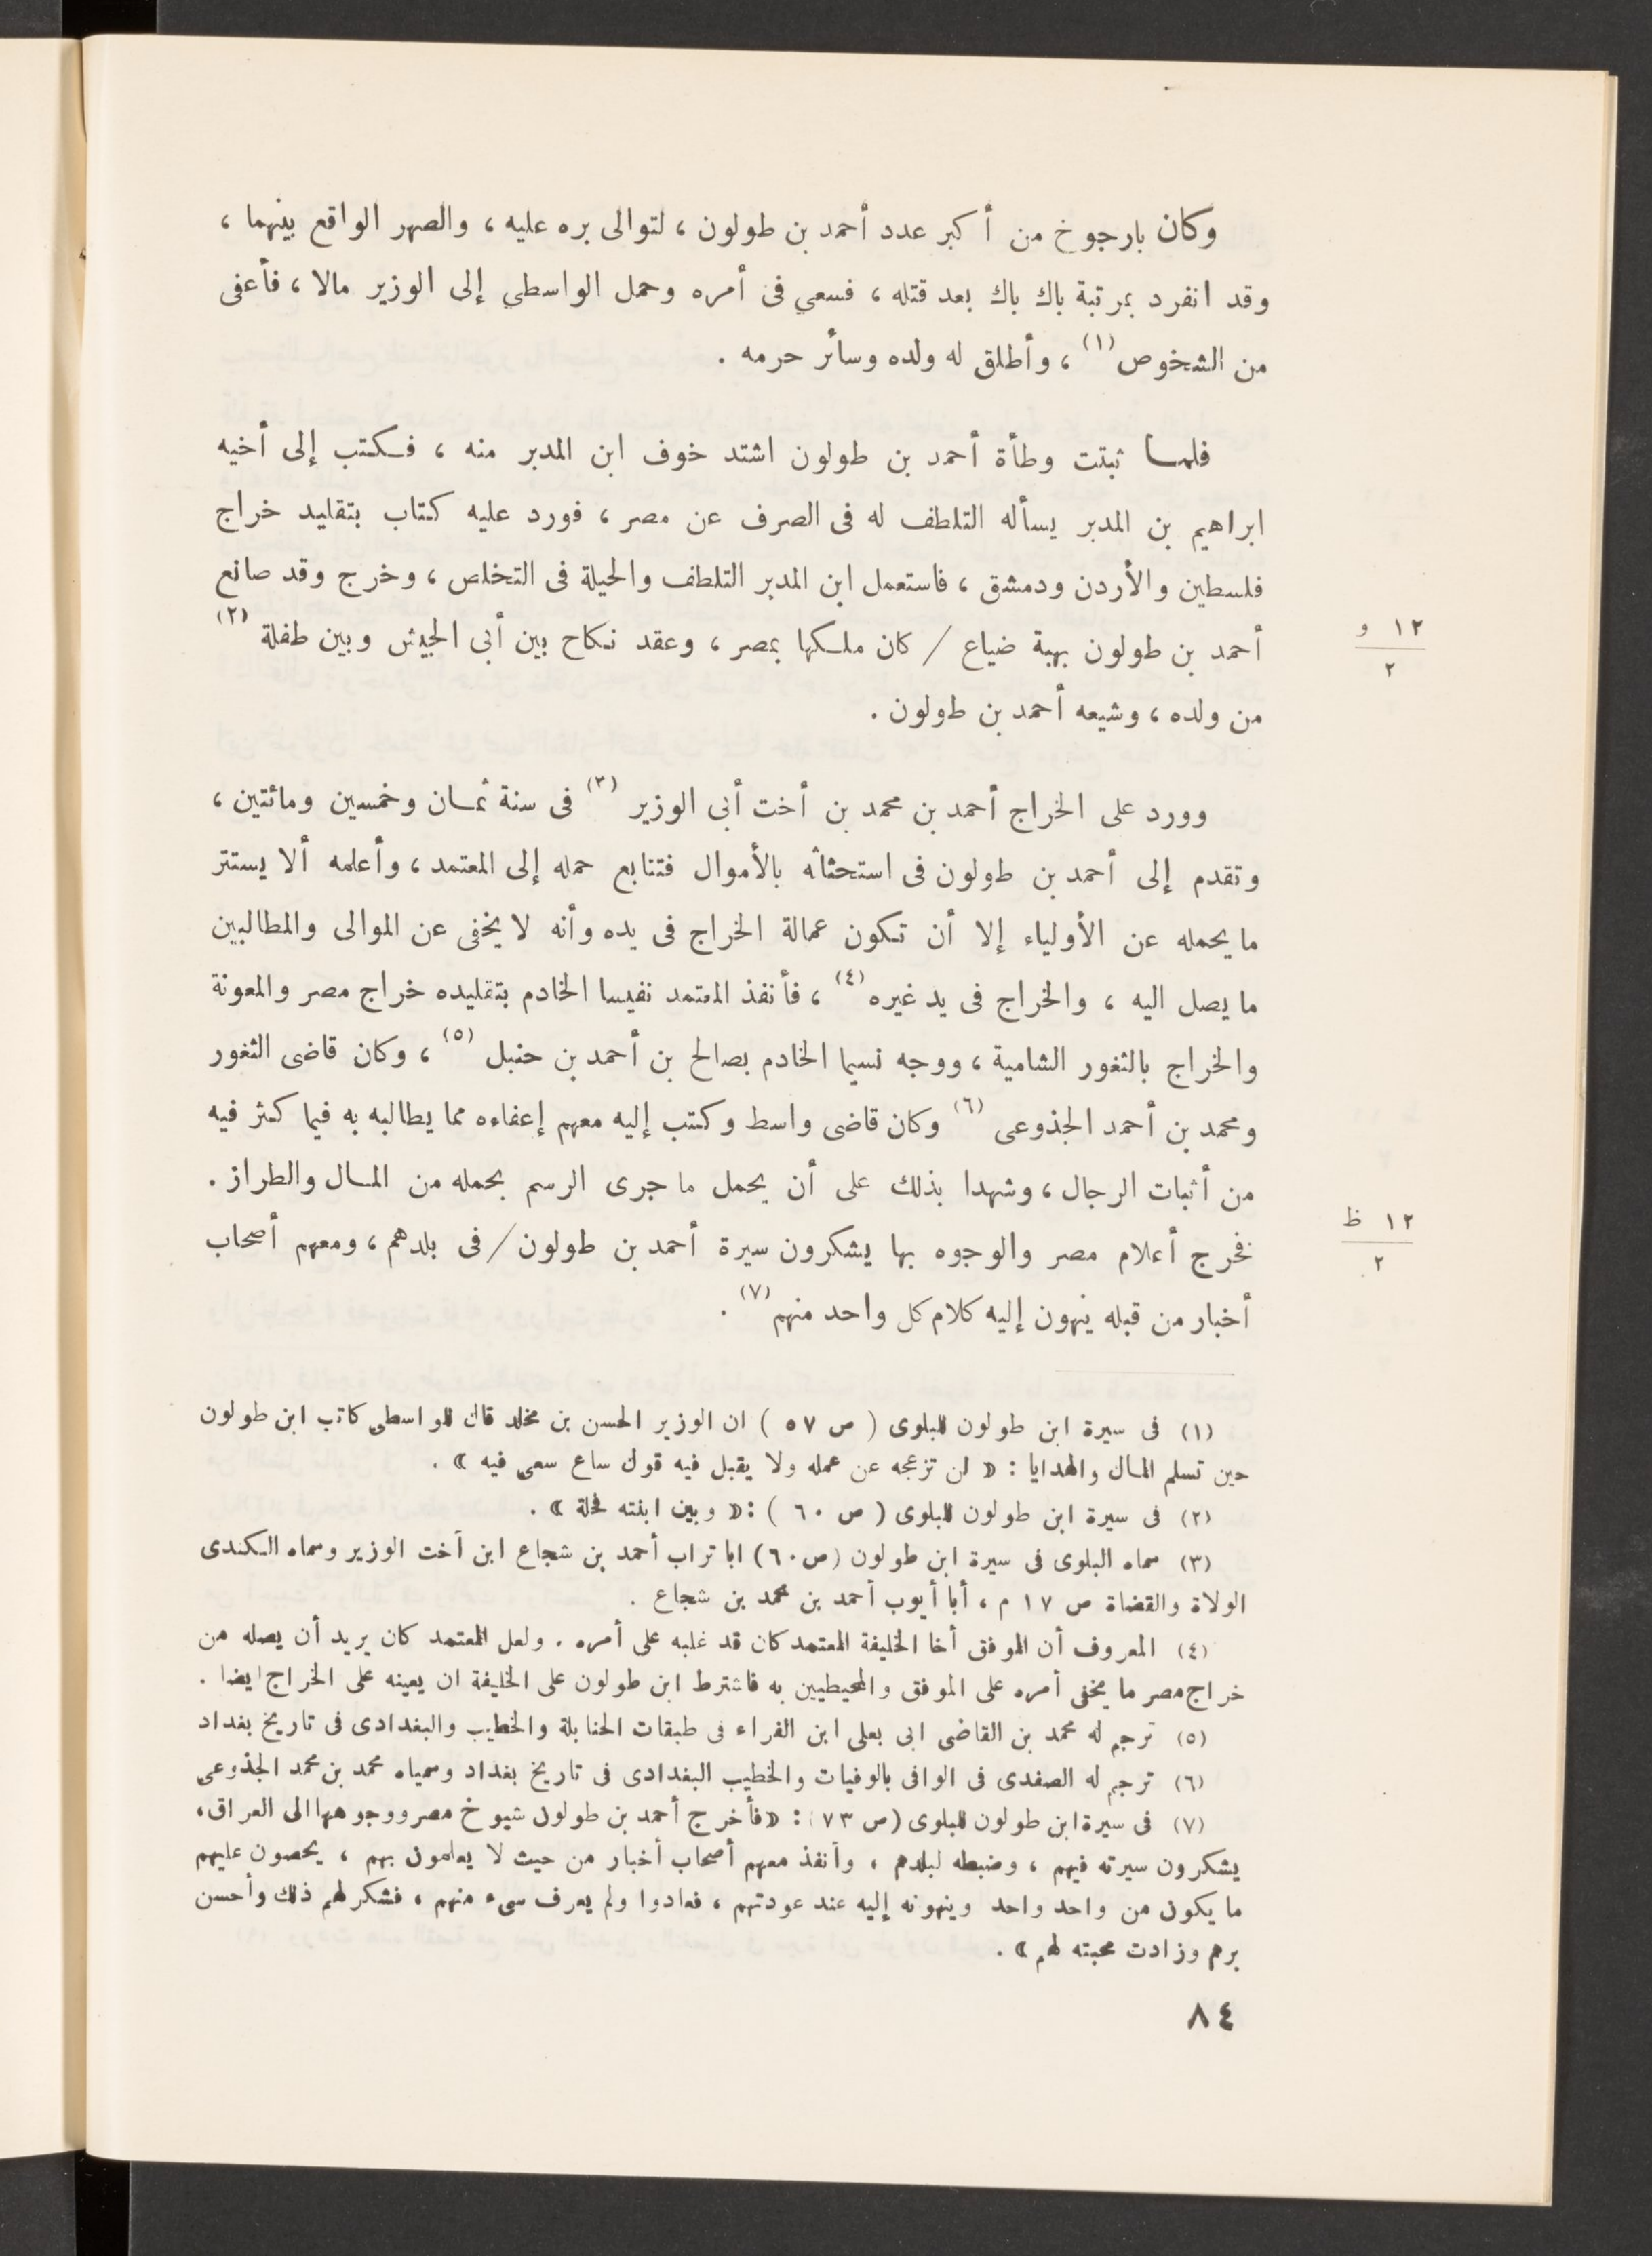 وكان بارجوخ من أكبر عدد أحمد بن طولون ، لتوالى بره عليه ، والصهر الواقع بينهما ،
وقد انفرد بمرتبة باك باك بعد قتله ، فسعي فى أمره وحمل الواسطي إلى الوزير مالا ، فأعفى
من الشخوص (١) ، وأطلق له ولده وسائر حرمه .
فلمـا ثبتت وطأة أحمد بن طولون اشتد خوف ابن المدبر منه ، فكتب إلى أخيه
ابراهيم بن المدبر يسأله التلطف له فى الصرف عن مصر ، فورد عليه كتاب بتقليد خراج
فلسطين والأردن ودمشق ، فاستعمل ابن المدبر التلطف والحيلة فى التخلص ، وخرج وقد صانع
أحمد بن طولون بهبة ضياع / كان ملكها بمصر ، وعقد نكاح بين أبى الجيش وبين طفلة (٢)
١٢ و
٢
من ولده ، وشيعه أحمد بن طولون .
وورد على الخراج أحمد بن محمد بن أخت أبى الوزير (٣) فى سنة ثمـان وخمسين ومائتين ،
وتقدم إلى أحمد بن طولون فى استحثاثه بالأموال فتتابع حمله إلى المعتمد ، وأعلمه ألا يستتر
ما يحمله عن الأولياء إلا أن تكون عمالة الخراج فى يده وأنه لا يخفى عن الموالى والمطالبين
ما يصل اليه ، والخراج فى يد غيره (٤) ، فأنفذ المعتمد نفيسا الخادم بتقليده خراج مصر والمعونة
والخراج بالثغور الشامية ، ووجه نسيما الخادم بصالح بن أحمد بن حنبل (٥) ، وكان قاضى الثغور
ومحمد بن أحمد الجذوعى (٦) وكان قاضى واسط وكتب إليه معهم إعفاءه مما يطالبه به فيما كثر فيه
من أثبات الرجال ، وشهدا بذلك على أن يحمل ما جرى الرسم بحمله من المـال والطراز .
فخرج أعلام مصر والوجوه بها يشكرون سيرة أحمد بن طولون / فى بلدهم ، ومعهم أصحاب
١٢ ظ
٢
أخبار من قبله ينهون إليه كلام كل واحد منهم (٧) .
(١) فى سيرة ابن طولون للبلوى ( ص ٥٧ ) ان الوزير الحسن بن مخلد قال للواسطى كاتب ابن طولون
حين تسلم المـال والهدايا : « لن تزعجه عن عمله ولا يقبل فيه قول ساع سعى فيه » .
(٢) فى سيرة ابن طولون للبلوى ( ص ٦٠ ) : « وبين ابنته فحلة » .
(٣) سماه البلوى فى سيرة ابن طولون (ص ٦٠) ابا تراب أحمد بن شجاع ابن أخت الوزير وسماه الكندى
الولاة والقضاة ص ١٧ م ، أبا أيوب أحمد بن محمد بن شجاع .
(٤) المعروف أن الموفق أخا الخليفة المعتمد كان قد غلبه على أمره . ولعل المعتمد كان يريد أن يصله من
خراج مصر ما يخفى أمره على الموفق والمحيطيين به فاشترط ابن طولون على الخليفة ان يعينه على الخراج ايضا .
(٥) ترجم له محمد بن القاضى ابى بعلى ابن الفراء فى طبقات الحنابلة والخطيب والبغدادى فى تاريخ بغداد
(٦) ترجم له الصفدى فى الوافى بالوفيات والخطيب البغدادى فى تاريخ بغداد وسمياه محمد بن محمد الجذوعى
(٧) فى سيرة ابن طولون للبلوى (ص ٧٣) : «فأخرج أحمد بن طولول شيوخ مصر ووجوهها الى العراق ،
يشكرون سيرته فيهم ، وضبطه لبلدهم ، وأنفذ معهم أصحاب أخبار من حيث لا يعلمون بهم ، يحصون عليهم
ما يكول من واحد واحد وينهونه إليه عند عودتهم ، فعادوا ولم يعرف سىء منهم ، فشكر لهم ذلك وأحسن
برهم وزادت محبته لهم » .
٨٤